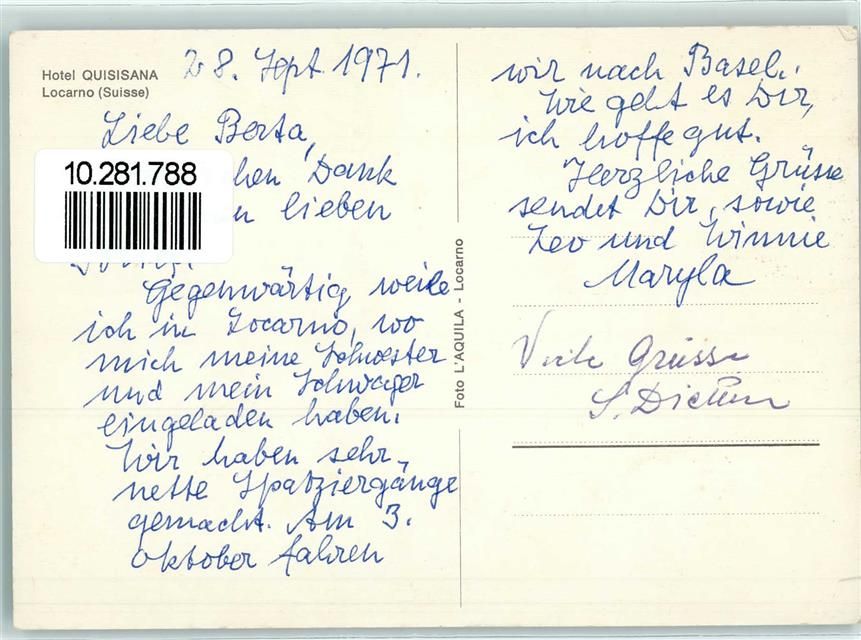 Hotel QUISISANA
Locarno (Suisse)
28. Sept. 1971.
Liebe Berta,
10.281.788
Dank
lieben
Gegenwärtig weile
ich in Locarno, wo
mich meine Schwester
und mein Schwager
eingeladen haben.
Wir haben sehr
nette Spatziergänge
gemacht. Am 3.
Oktober fahren
Foto L'AQUILA - Locarno
wir nach Basel.
Wie geht es Dir,
ich hoffe gut.
Herzliche Grüsse
sendet Dir, sowie
Leo und Winnie
Maryla
Viele Grüsse
S.